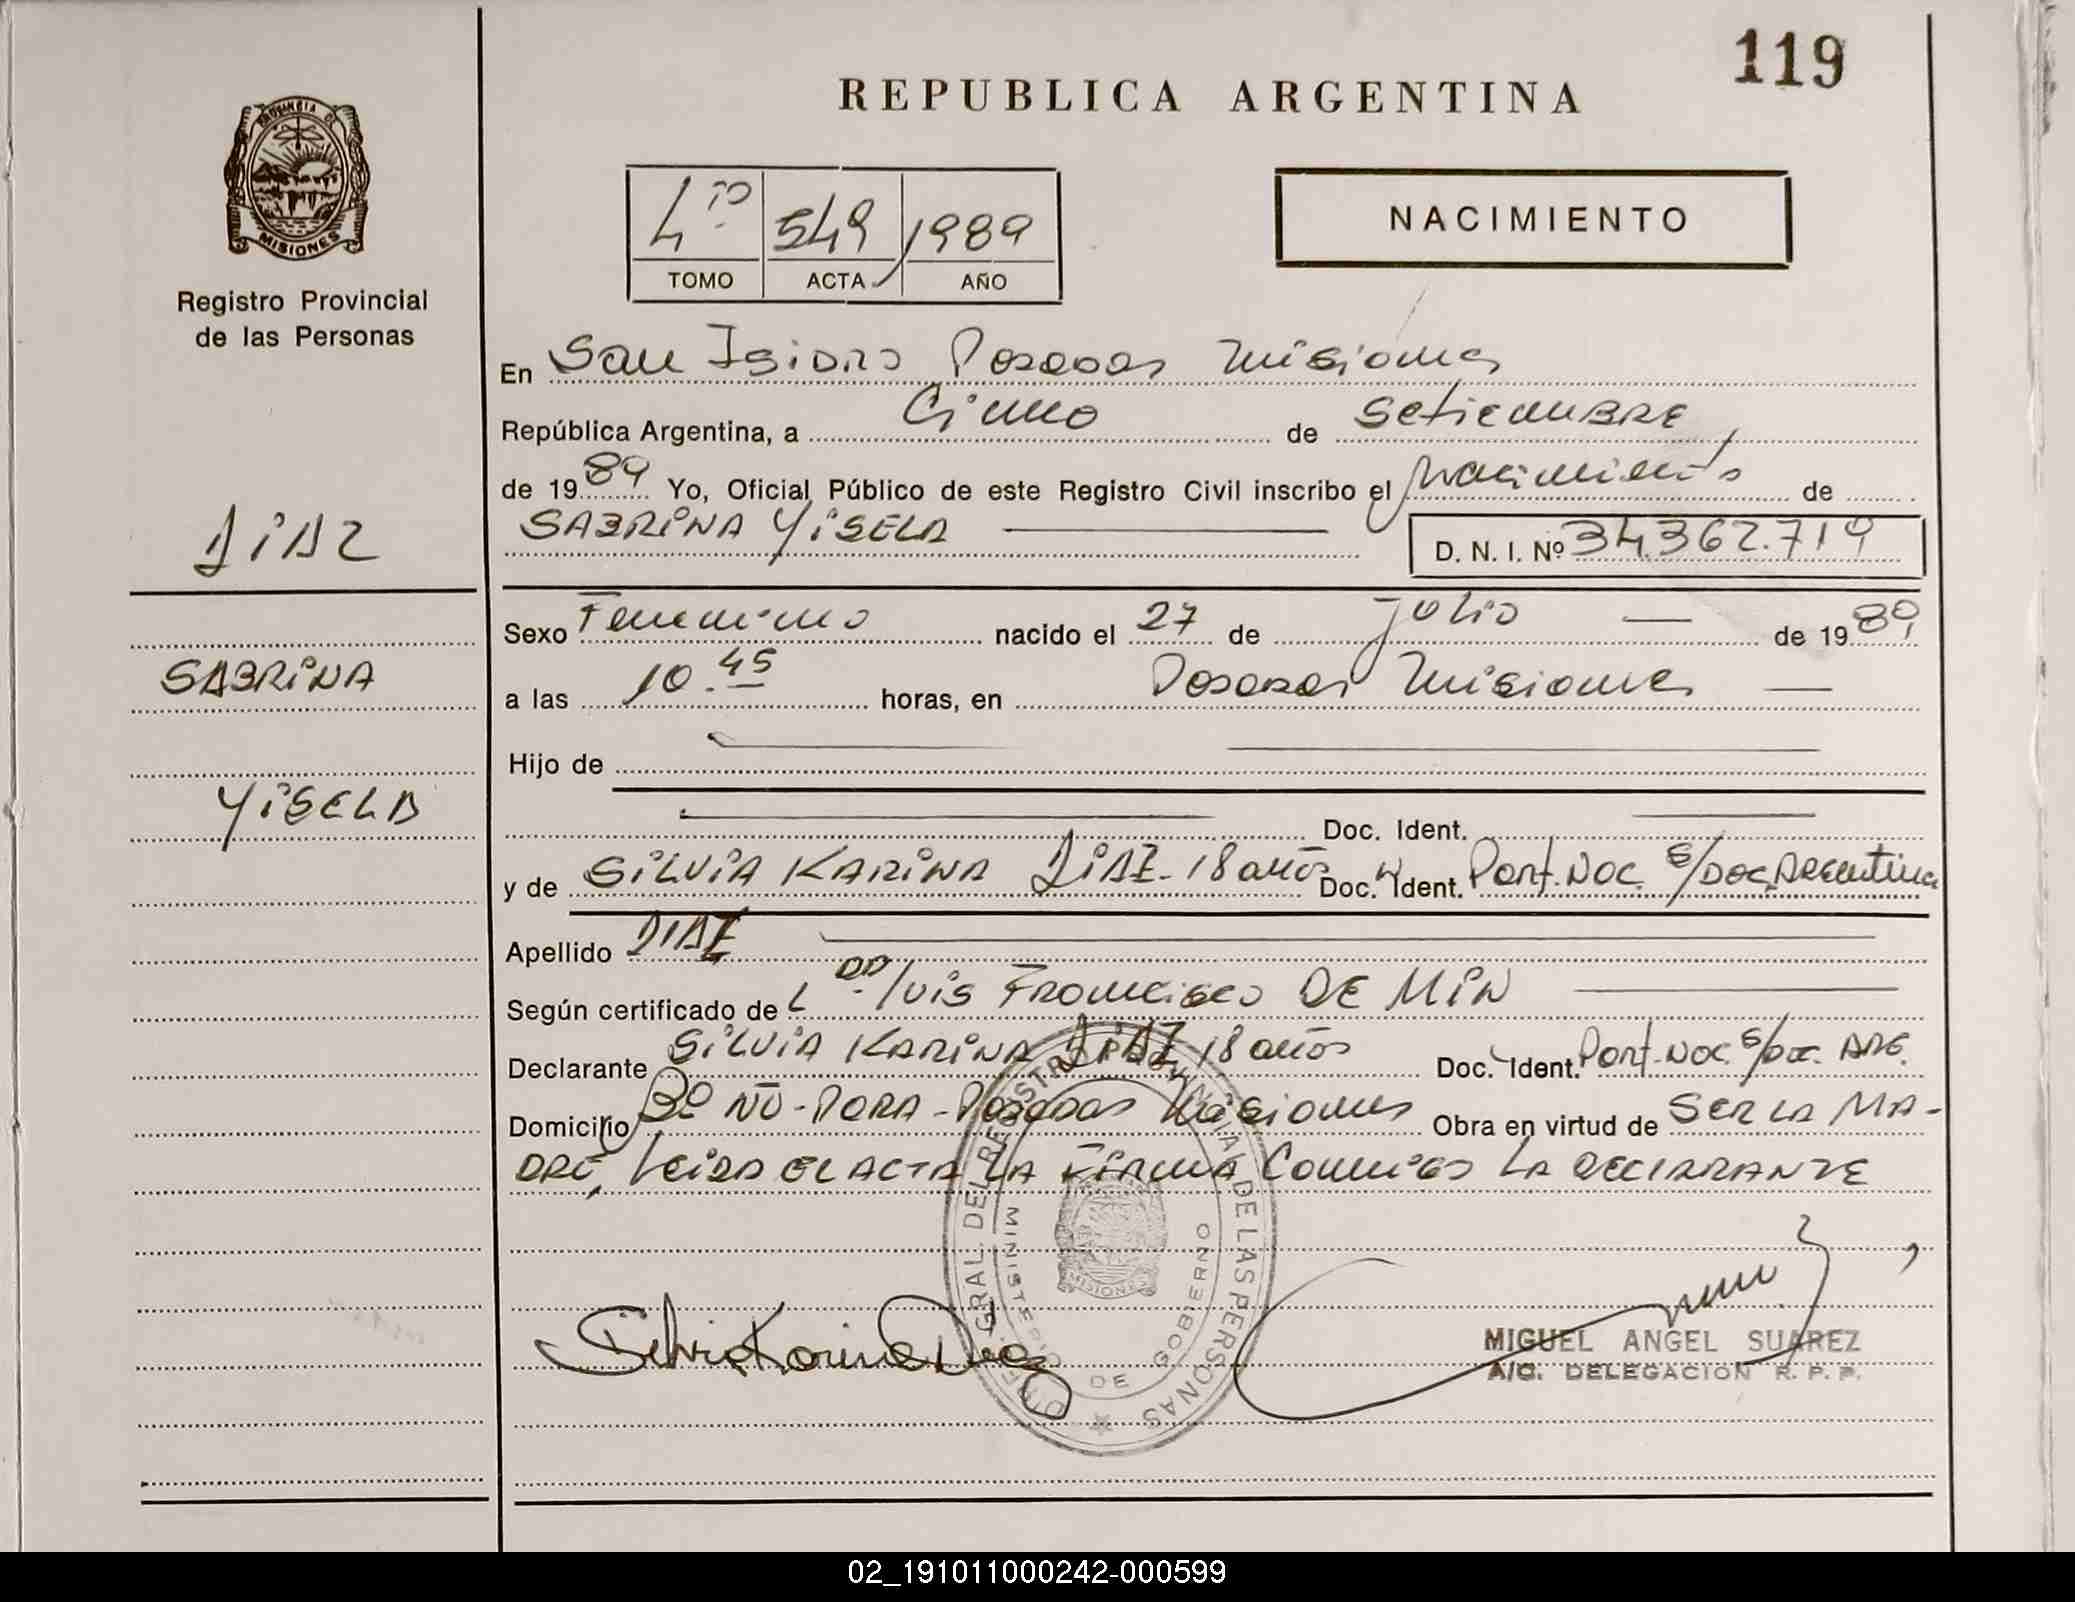 119
REPUBLICA ARGENTINA
PROVINCIA DE
MISIONES
Registro Provincial
de las Personas
4to 549 1989
TOMO ACTA AÑO
NACIMIENTO
En San Isidro Posadas Misiones
República Argentina, a Cinco de Setiembre
de 1989 Yo, Oficial Público de este Registro Civil inscribo el Nacimiento de
SABRINA YISELA D. N. I. Nº 34.362.719
DIAZ
SABRINA
YISELA
Sexo Femenino nacido el 27 de Julio de 1989
a las 10.45 horas, en Posadas Misiones
Hijo de
Doc. Ident.
y de SILVIA KARINA DIAZ - 18 años Doc. Ident. Port. Doc. s/Doc. Argentina
Apellido DIAZ
Según certificado de Luis Francisco DE MIN
Declarante SILVIA KARINA DIAZ 18 años Doc. Ident. Port. Doc. s/Doc. ARG.
Domicilio Bº ÑU-PORA-Posadas Misiones Obra en virtud de SER LA MA-
DRE, Leida el ACTA LA FIRMA Conmigo LA DECLARANTE
DIREC. GRAL. DEL REGISTRO PROVINCIAL DE LAS PERSONAS
MINISTERIO DE GOBIERNO
MISIONES
Silvia Karina Diaz
MIGUEL ANGEL SUAREZ
A/C. DELEGACION R. P. P.
02_191011000242-000599